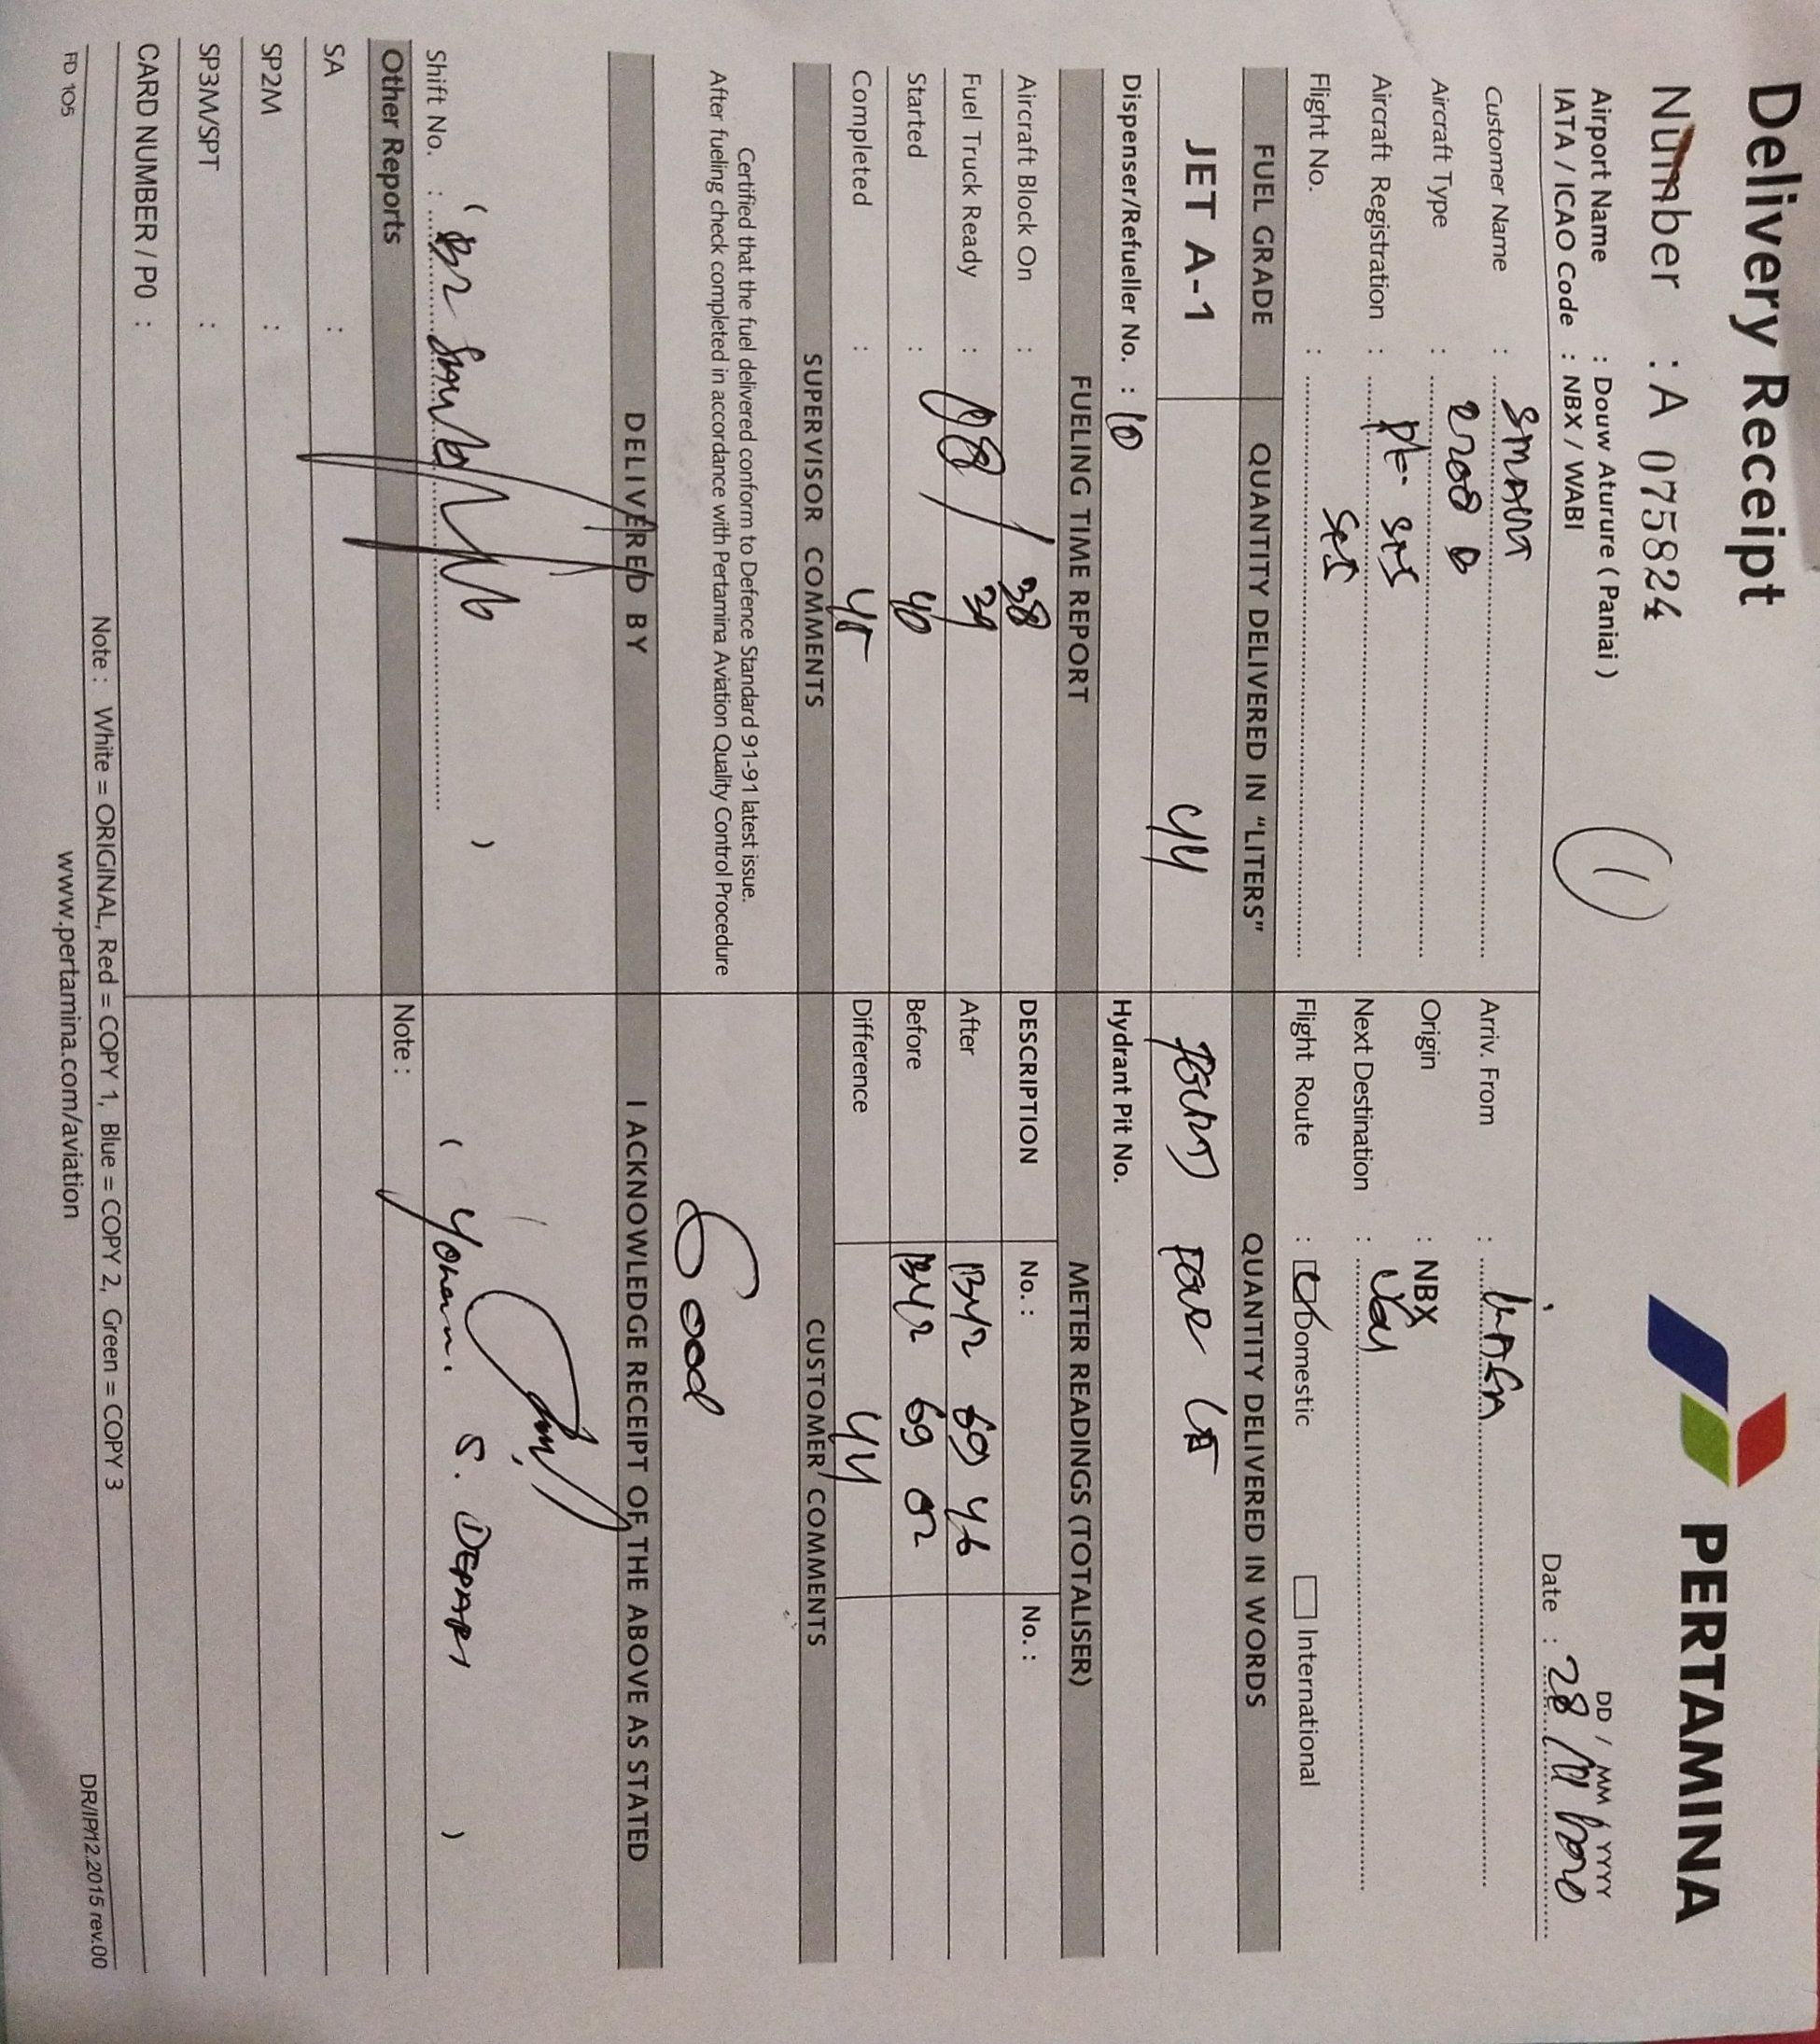 Delivery Receipt
PERTAMINA
Number : A 075824
DD / MM / YYYY
Airport Name : Douw Aturure ( Paniai )
IATA / ICAO Code : NBX / WABI
Date : 28
Customer Name : SMART
Arriv. From :
Aircraft Type :
Origin : NBX
Aircraft Registration : PK-
Next Destination :
Flight No. :
Flight Route : Domestic International
FUEL GRADE QUANTITY DELIVERED IN "LITERS" QUANTITY DELIVERED IN WORDS
JET A-1 44
Dispenser/Refueller No. : 10 Hydrant Pit No.
FUELING TIME REPORT METER READINGS (TOTALISER)
Aircraft Block On : 38 DESCRIPTION No. : No. :
Fuel Truck Ready : 08 / 39 After 1342 69 46
Started : 40 Before 1342 69 02
Completed : 45 Difference 44
SUPERVISOR COMMENTS CUSTOMER COMMENTS
Certified that the fuel delivered conform to Defence Standard 91-91 latest issue.
After fueling check completed in accordance with Pertamina Aviation Quality Control Procedure
Good
DELIVERED BY I ACKNOWLEDGE RECEIPT OF THE ABOVE AS STATED
Shift No. :
Other Reports Note :
SA :
SP2M :
SP3M/SPT :
CARD NUMBER / PO :
Note : White = ORIGINAL, Red = COPY 1, Blue = COPY 2, Green = COPY 3
FD 105 www.pertamina.com/aviation DR/IP/12.2015 rev.00